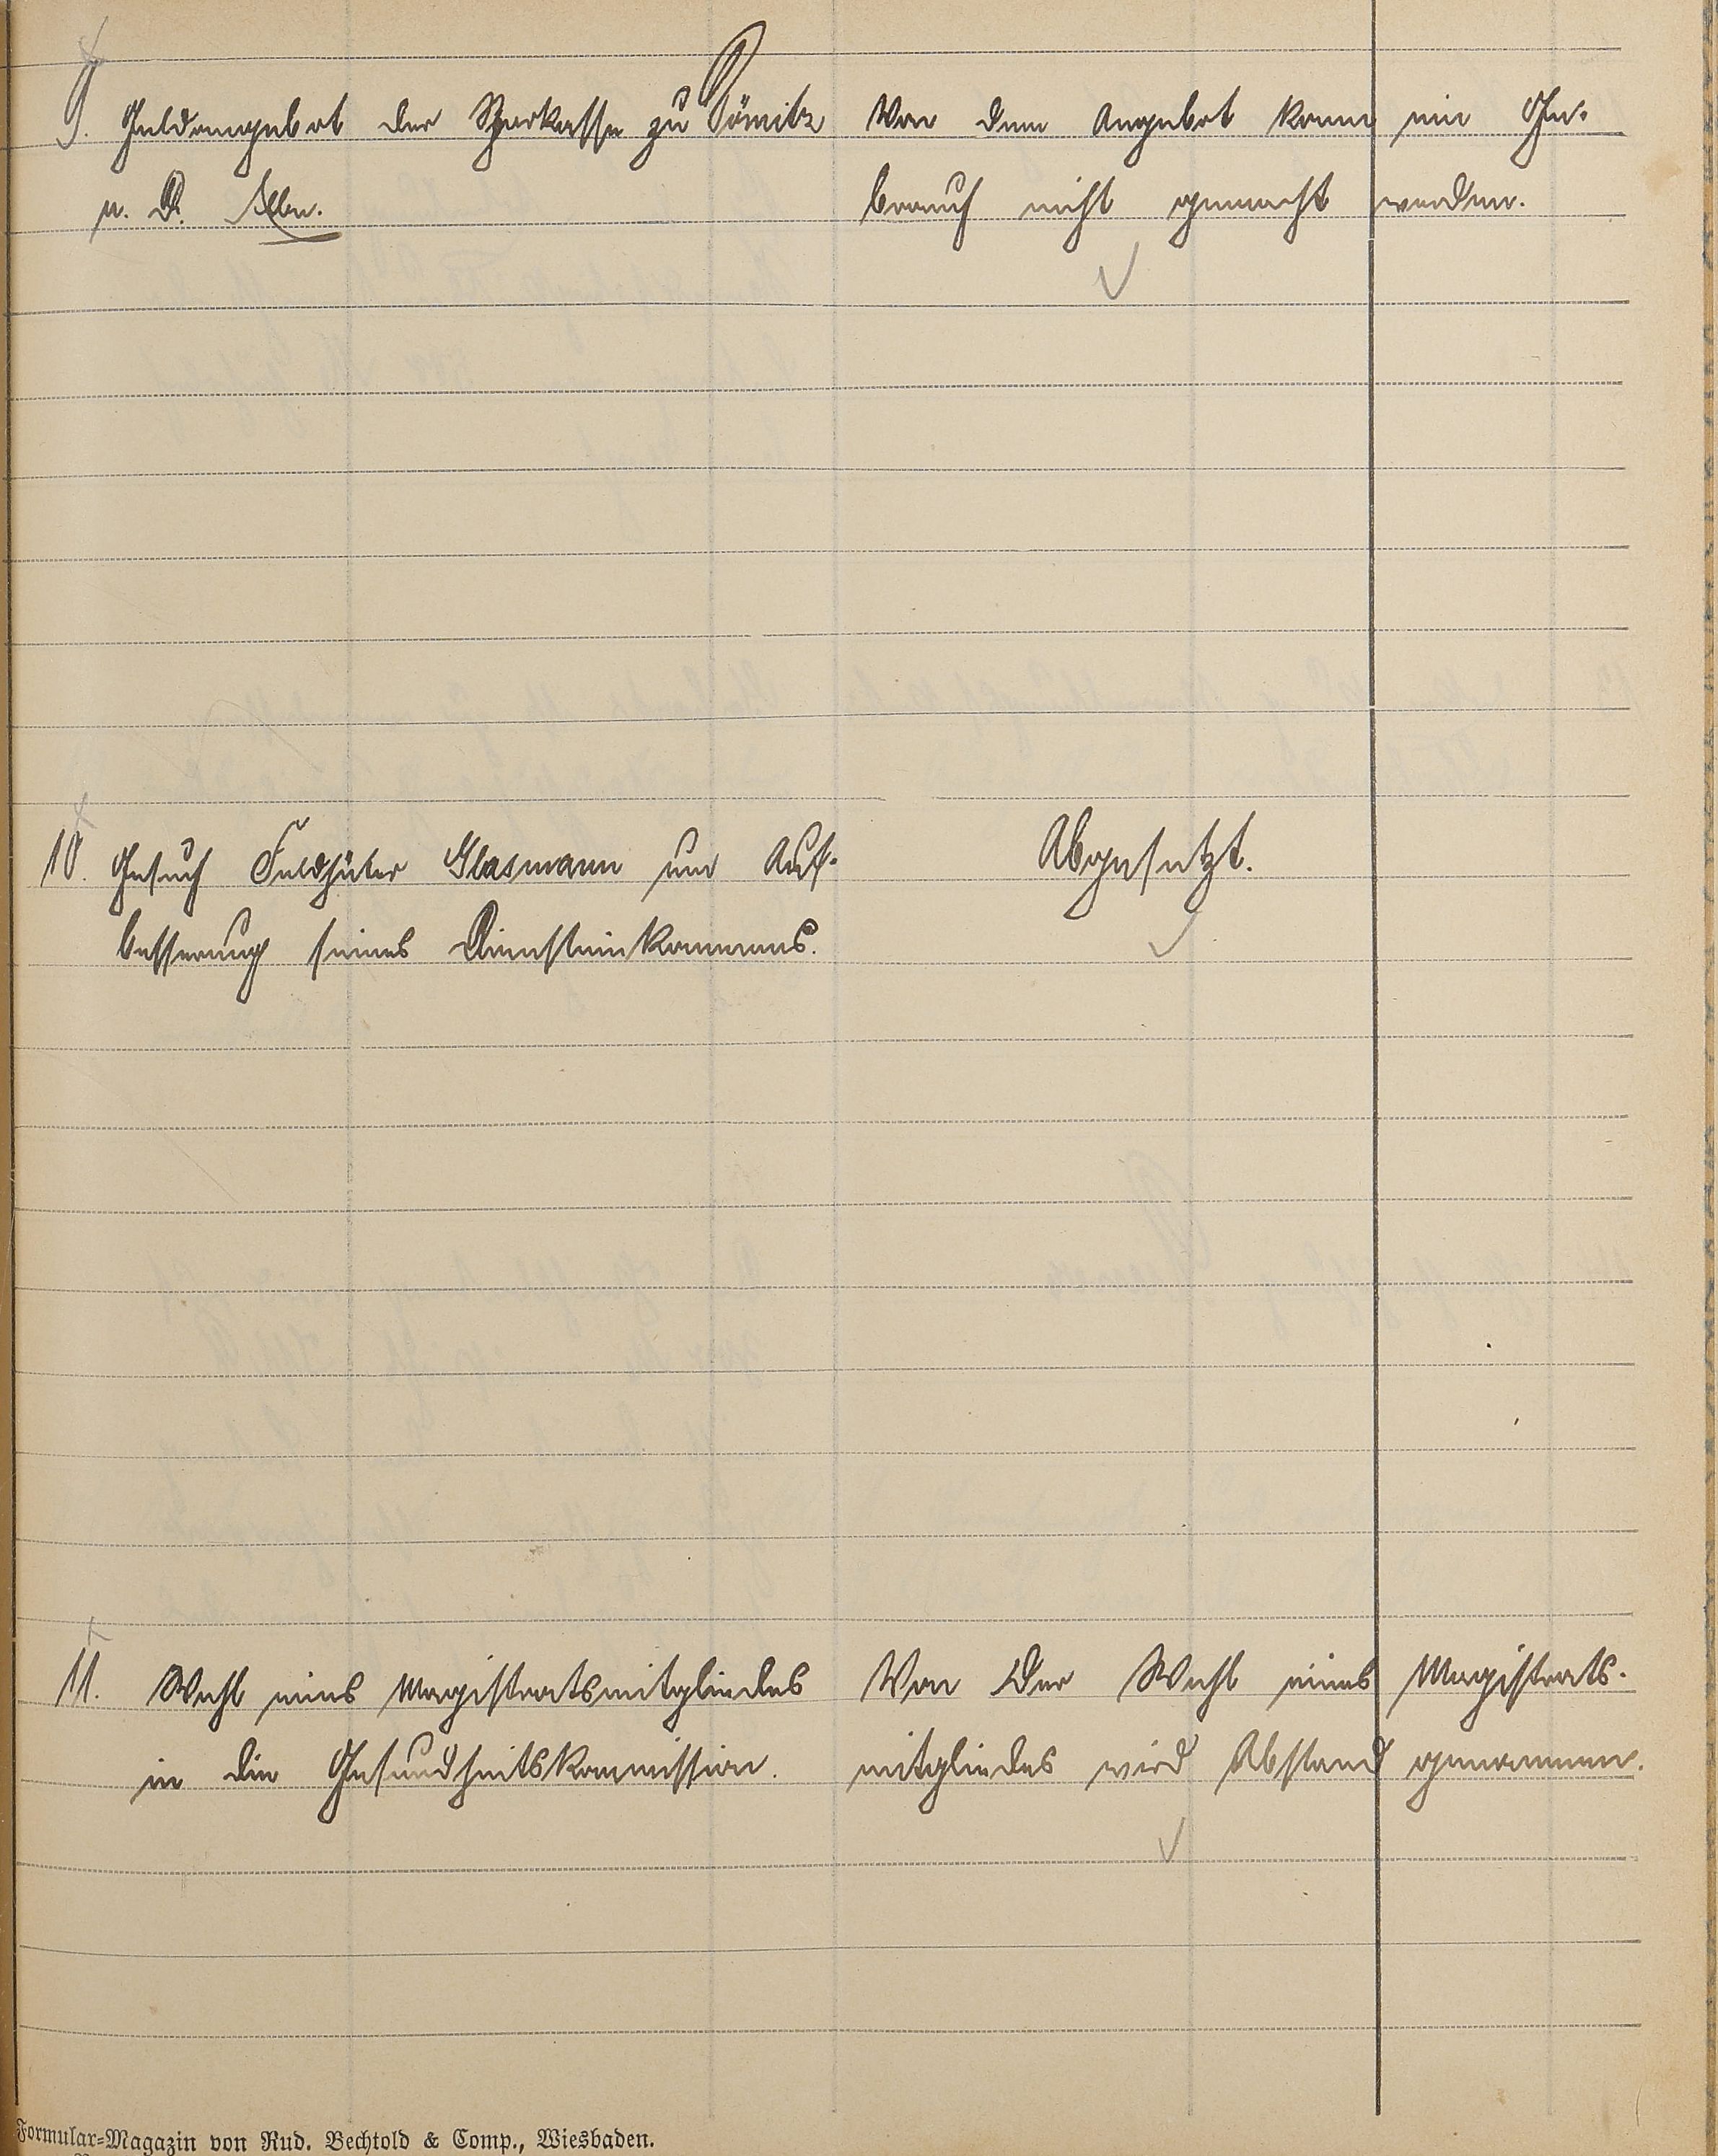 9. Geldangebot der Sparkasse zu Dömitz
a. d. Elbe.
Von dem Angebot kann ein Ge-
brauch nicht gemacht werden.
10. Gesuch Feldhüter Glasmann um Auf-
besserung seines Diensteinkommens.
Abgesetzt.
11. Wahl eines Magistratsmitgliedes
in die Gesundheitskommission.
Von der Wahl eines Magistrats-
mitgliedes wird Abstand genommen.
Formular-Magazin von Rud. Bechtold & Comp., Wiesbaden.